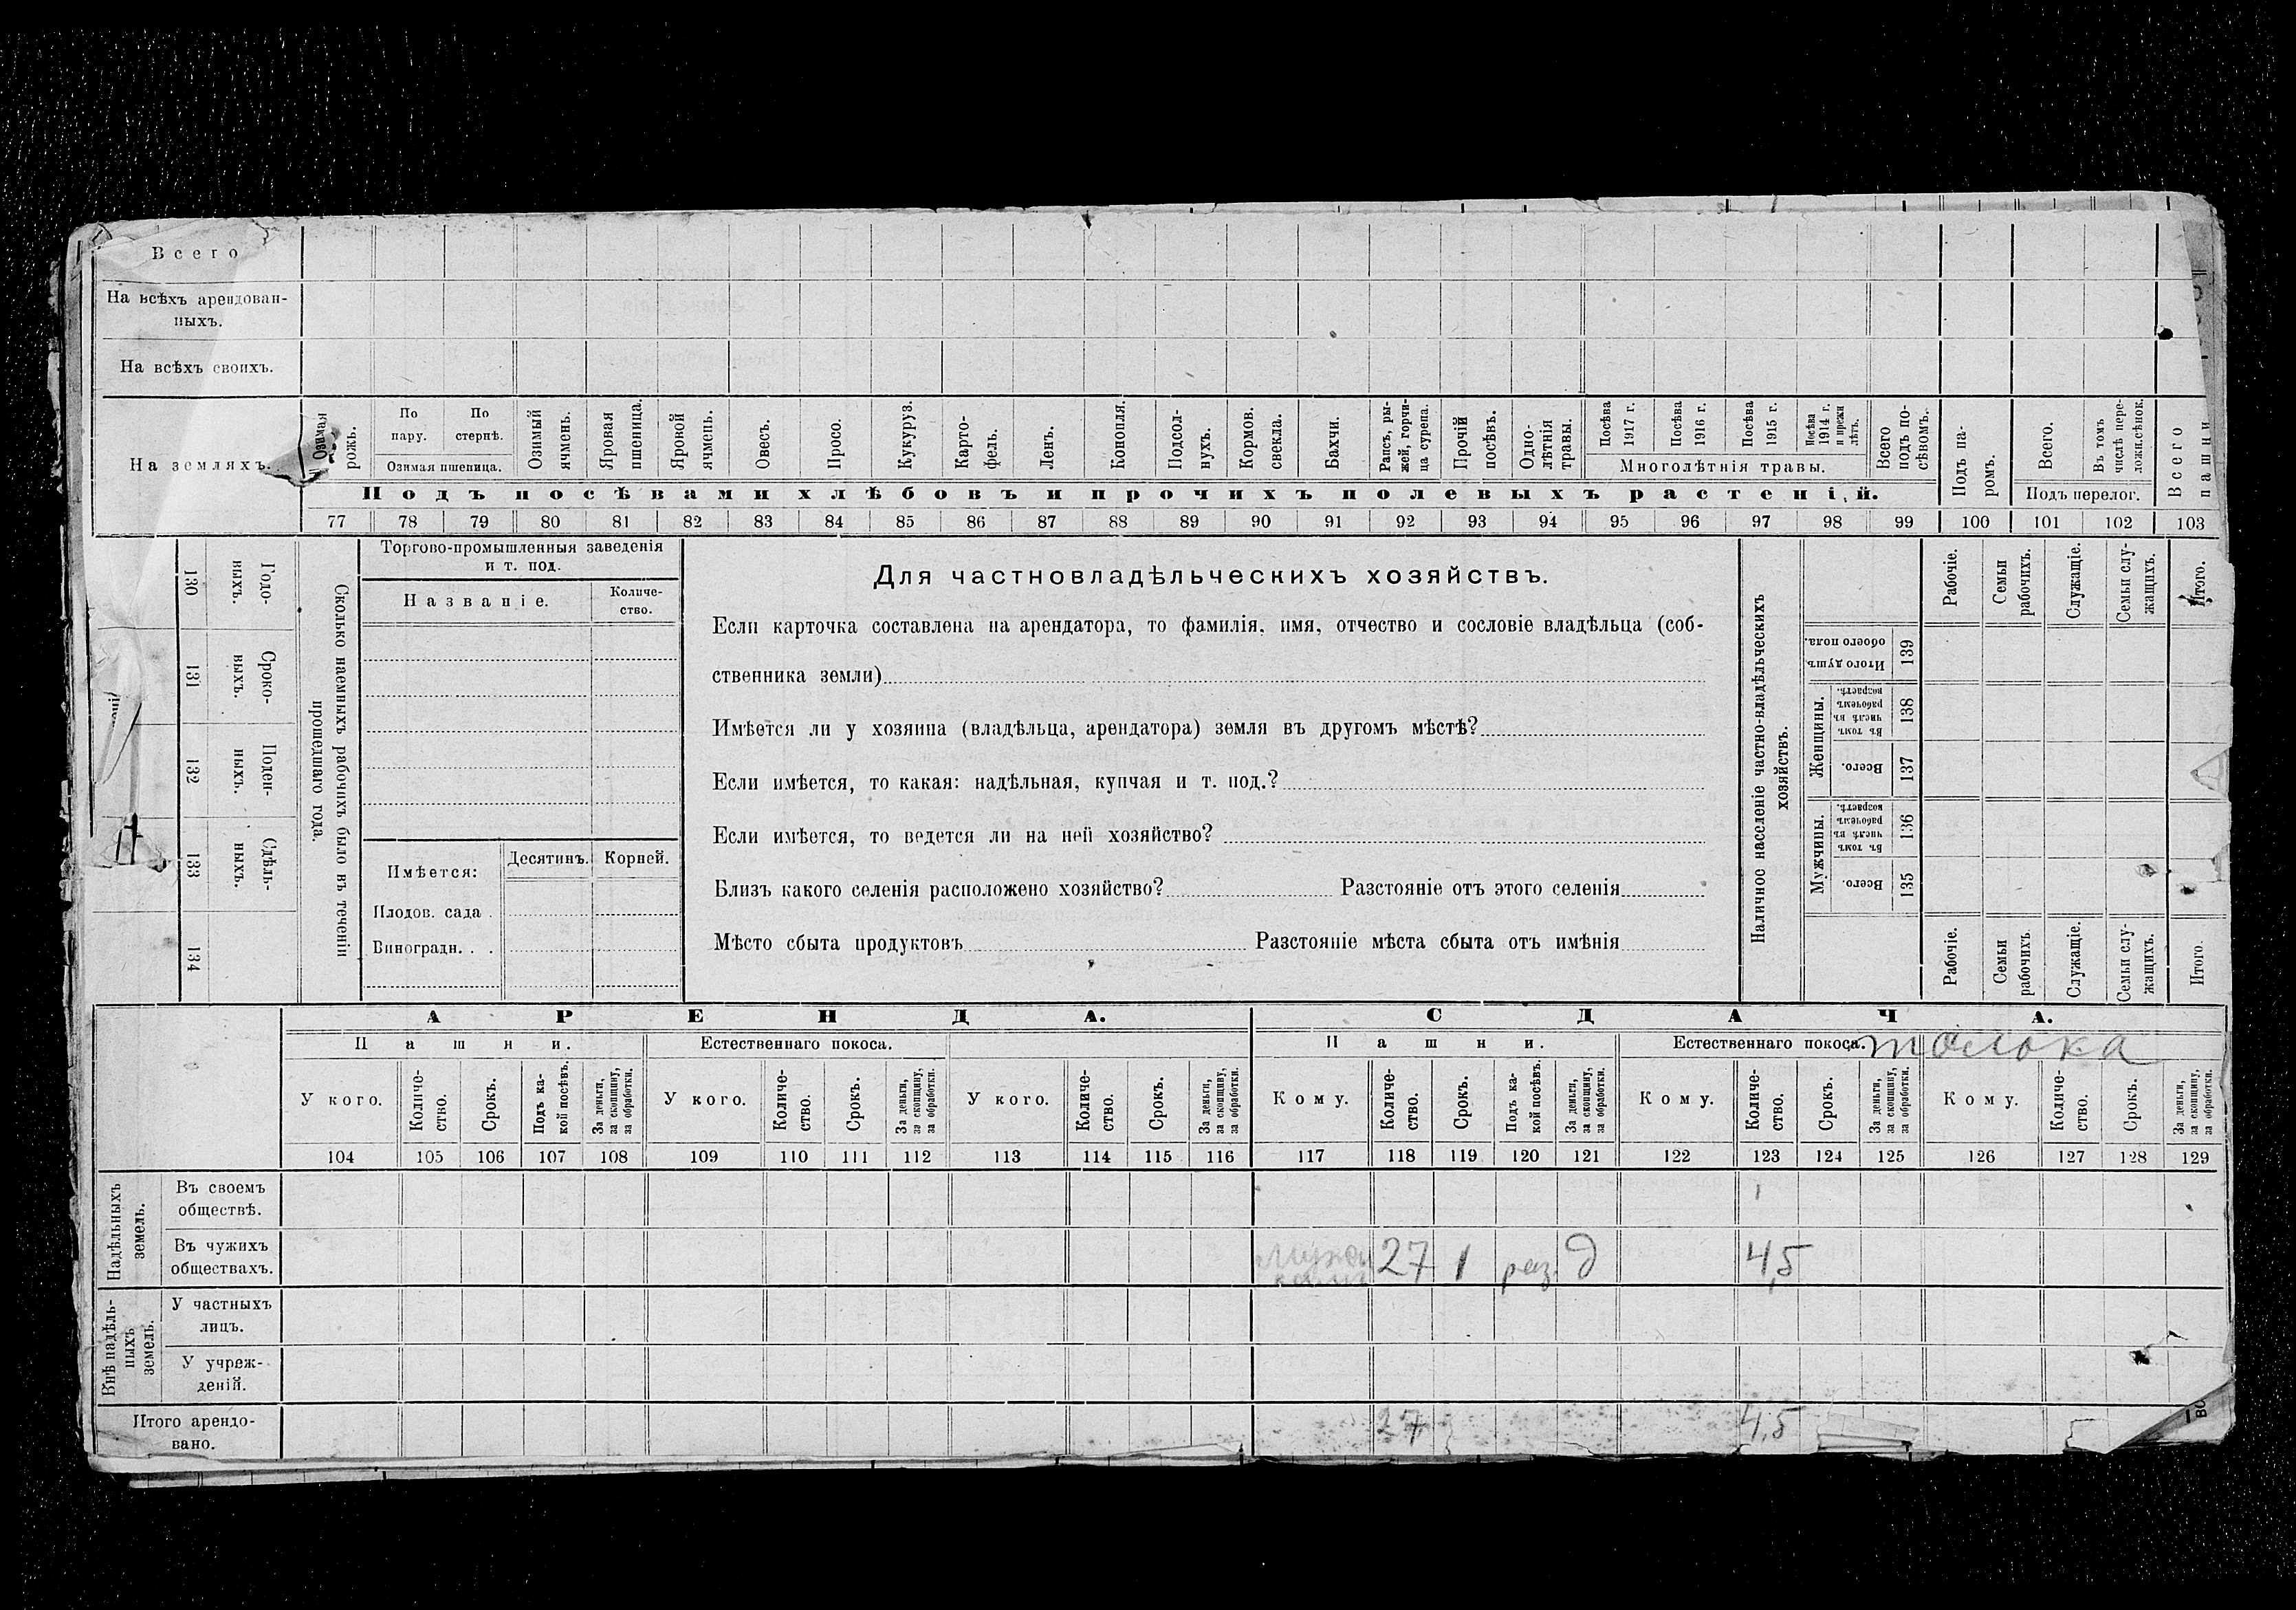 Всего
На всѣхъ арендован-
ныхъ.
На всѣхъ своихъ.
На земляхъ.
Озимая рожь.
По пару.
По стернѣ.
Озимая пшеница.
Озимый ячмень.
Яровая пшеница.
Яровой ячмень.
Овесъ.
Просо.
Кукуруз.
Карто-
фель.
Ленъ.
Конопля.
Подсол-
нухъ.
Кормов. свекла.
Бахчи.
Рапсъ, ры-
жей, горчи-
ца сурепа.
Прочій посѣвъ.
Одно-
лѣтнія
травы.
Посѣва 1917 г.
Посѣва 1916 г.
Посѣва 1915 г.
Посѣва 1914 г. и прежн лѣтъ.
Многолѣтнія травы.
Всего
подъ по-
сѣвомъ.
Подъ па-
ромъ.
Всего.
Въ томъ числѣ пере-
ложн.сѣнок.
Подъ перелог.
Всего пашни
Подъ посѣвами хлѣбовъ и прочихъ полевыхъ растеній.
77 78 79 80 81 82 83 84 85 86 87 88 89 90 91 92 93 94 95 96 97 98 99 100 101 102 103
130 Годо-
ныхъ.
131 Сроко-
ныхъ.
132 Поден-
ныхъ.
133 Сдѣль-
ныхъ.
134
Сколько наемныхъ рабочихъ было въ теченіи
прошедшаго года.
Торгово-промышленныя заведенія
и т. под.
Названіе.
Количе-
ство.
Имѣется:
Десятинъ.
Корней.
Плодов. сада .
Виноградн. . .
Для частновладѣльческихъ хозяйствъ.
Если карточка составлена на арендатора, то фамилія, имя, отчество и сословіе владѣльца (соб-
ственника земли)
Имѣется ли у хозяина (владѣльца, арендатора) земля въ другомъ мѣстѣ?
Если имѣется, то какая: надѣльная, купчая и т. под.?
Если имѣется, то ведется ли на ней хозяйство?
Близъ какого селенія расположено хозяйство? Разстояніе отъ этого селенія
Мѣсто сбыта продуктовъ Разстояніе мѣста сбыта отъ имѣнія
Наличное населеніе частно-владѣльческихъ
хозяйствъ.
Рабочіе.
Семьи рабочихъ.
Служащіе.
Семьи слу-
жащихъ.
Итого.
Итого душъ обоего пола. 139
Женщины.
Въ томъ числѣ въ рабочемъ возрастѣ. 138
Всего. 137
Мужчины.
Въ томъ числѣ въ рабочемъ возрастѣ. 136
Всего. 135
Рабочіе.
Семьи рабочихъ.
Служащіе.
Семьи слу-
жащихъ.
Итого.
АРЕНДА.
СДАЧА.
Пашни.
Естественнаго покоса.
Пашни.
Естественнаго покоса.
толока
У кого.
Количе-
ство.
Срокъ.
Подъ ка-
кой посѣвъ.
За деньги,
за скопщину,
за обработки.
У кого.
Количе-
ство.
Срокъ.
За деньги,
за скопщину,
за обработки.
У кого.
Количе-
ство.
Срокъ.
За деньги,
за скопщину,
за обработки.
Кому.
Количе-
ство.
Срокъ.
Подъ ка-
кой посѣвъ.
За деньги,
за скопщину,
за обработки.
Кому.
Количе-
ство.
Срокъ.
За деньги,
за скопщину,
за обработки.
Кому.
Количе-
ство.
Срокъ.
За деньги,
за скопщину,
за обработки.
104 105 106 107 108 109 110 111 112 113 114 115 116 117 118 119 120 121 122 123 124 125 126 127 128 129
Надѣльныхъ
земель.
Въ своемъ
обществѣ.
Въ чужихъ
обществахъ.
27 1 раз. д 4,5
Внѣ надѣль-
ныхъ
земель.
У частныхъ
лицъ.
У учреж-
деній.
Итого арендо-
вано.
27 4,5